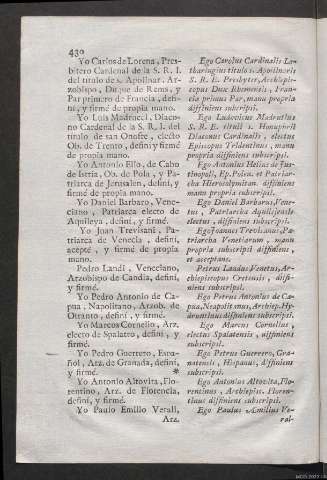 430
Yo Carlos de Lorena, Pres-
bitero Cardenal de la S. R. I.
del titulo de s. Apolinar, Ar-
zobispo, Duque de Rems, y
Par primero de Francia, defi-
ní, y firmé de propia mano.
Yo Luis Madrucci, Diaco-
no Cardenal de la S. R. I. del
titulo de san Onofre, electo
Ob. de Trento, definí y firmé
de propia mano.
Yo Antonio Elio, de Cabo
de Istria, Ob. de Pola, y Pa-
triarca de Jerusalen, definí, y
firmé de propia mano.
Yo Daniel Barbaro, Vene-
ciano, Patriarca electo de
Aquileya, definí, y firmé.
Yo Juan Trevisani, Pa-
triarca de Venecia, definí,
acepté, y firmé de propia
mano.
Pedro Landi, Veneciano,
Arzobispo de Candia, definí,
y firmé.
Yo Pedro Antonio de Ca-
pua, Napolitano, Arzob. de
Otranto, definí, y firmé.
Yo Marcos Cornelio, Arz.
electo de Spalatro, definí, y
firmé.
Yo Pedro Guerrero, Espa-
ñol, Arz. de Granada, definí,
y firmé. *
Yo Antonio Altovita, Flo-
rentino, Arz. de Florencia,
definí, y firmé.
Yo Paulo Emilio Verali,
Arz.
Ego Carolus Cardinalis Lo-
tharingius tituli s. Apolinaris
S. R. E. Presbyter, Archiepis-
copus Dux Rhemensis, Fran-
cia primus Par, manu propria
diffiniens subscripsi.
Ego Ludovicus Madrutius
S. R. E. tituli s. Honuphrii
Diaconus Cardinalis, electus
Episcopus Tridentinus, manu
propria diffiniens subscripsi.
Ego Antonius Helius de Jus-
tinopoli, Ep. Polen. et Patriar-
cha Hierosolymitan. diffiniens
manu propria subscripsi.
Ego Daniel Barbarus, Vene-
tus, Patriarcha Aquilejensis
electus, diffiniens subscripsi.
Ego Joannes Trevisanus, Pa-
triarcha Venetiarum, manu
propria subscripsi diffiniens,
et acceptans.
Petrus Landus Venetus, Ar-
chiepiscopus Cretensis, diffi-
niens subscripsi.
Ego Petrus Antonius de Ca-
pua, Neapolitanus, Archiep. Hy-
druntinus diffiniens subscripsi.
Ego Marcus Cornelius,
electus Spalatensis, diffiniens
subscripsi.
Ego Petrus Guerrero, Gra-
natensis, Hispanus, diffiniens
subscripsi.
Ego Antonius Altovita, Flo-
rentinus, Archiepisc. Floren-
tinus diffiniens subscripsi.
Ego Paulus Æmilius Ve-
ral-